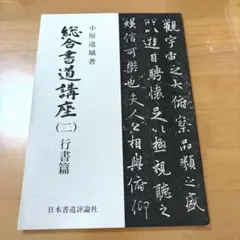 小原道城著
総合書道講座
(二)行書篇
日本書道評論社
觀宇宙之大俯察品類之盛
所以遊目騁懷足以極視聽之
娛信可樂也夫人之相與俯仰